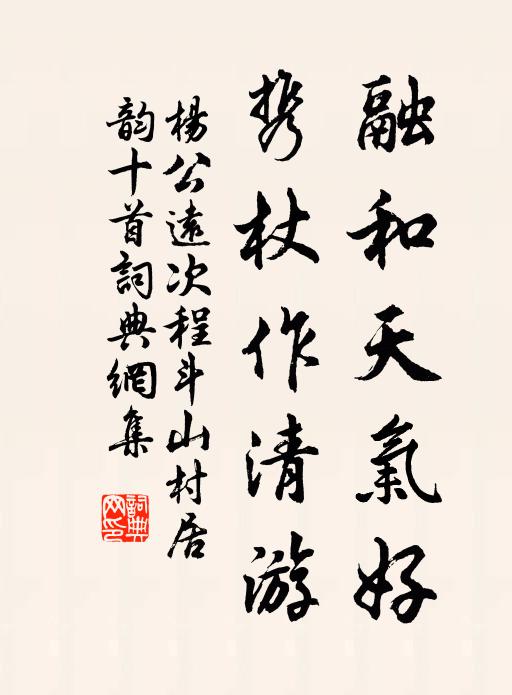 融和天氣好
携杖作清游
楊公遠次程斗山村居
韵十首詞典網集
詞典網印